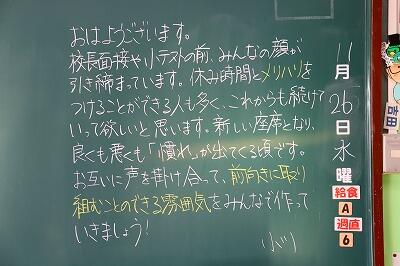 おはようございます。
校長面接や小テストの前、みんなの顔が
引き締まっています。休み時間とメリハリを
つけることができる人も多く、これからも続けて
いって欲しいと思います。新しい座席となり、
良くも悪くも「慣れ」が出てくる頃です。
お互いに声を掛け合って、前向きに取り
組むことのできる雰囲気をみんなで作って
いきましょう!
小川
11
月
26
日
水
曜
給食
A
週直
6
吉田